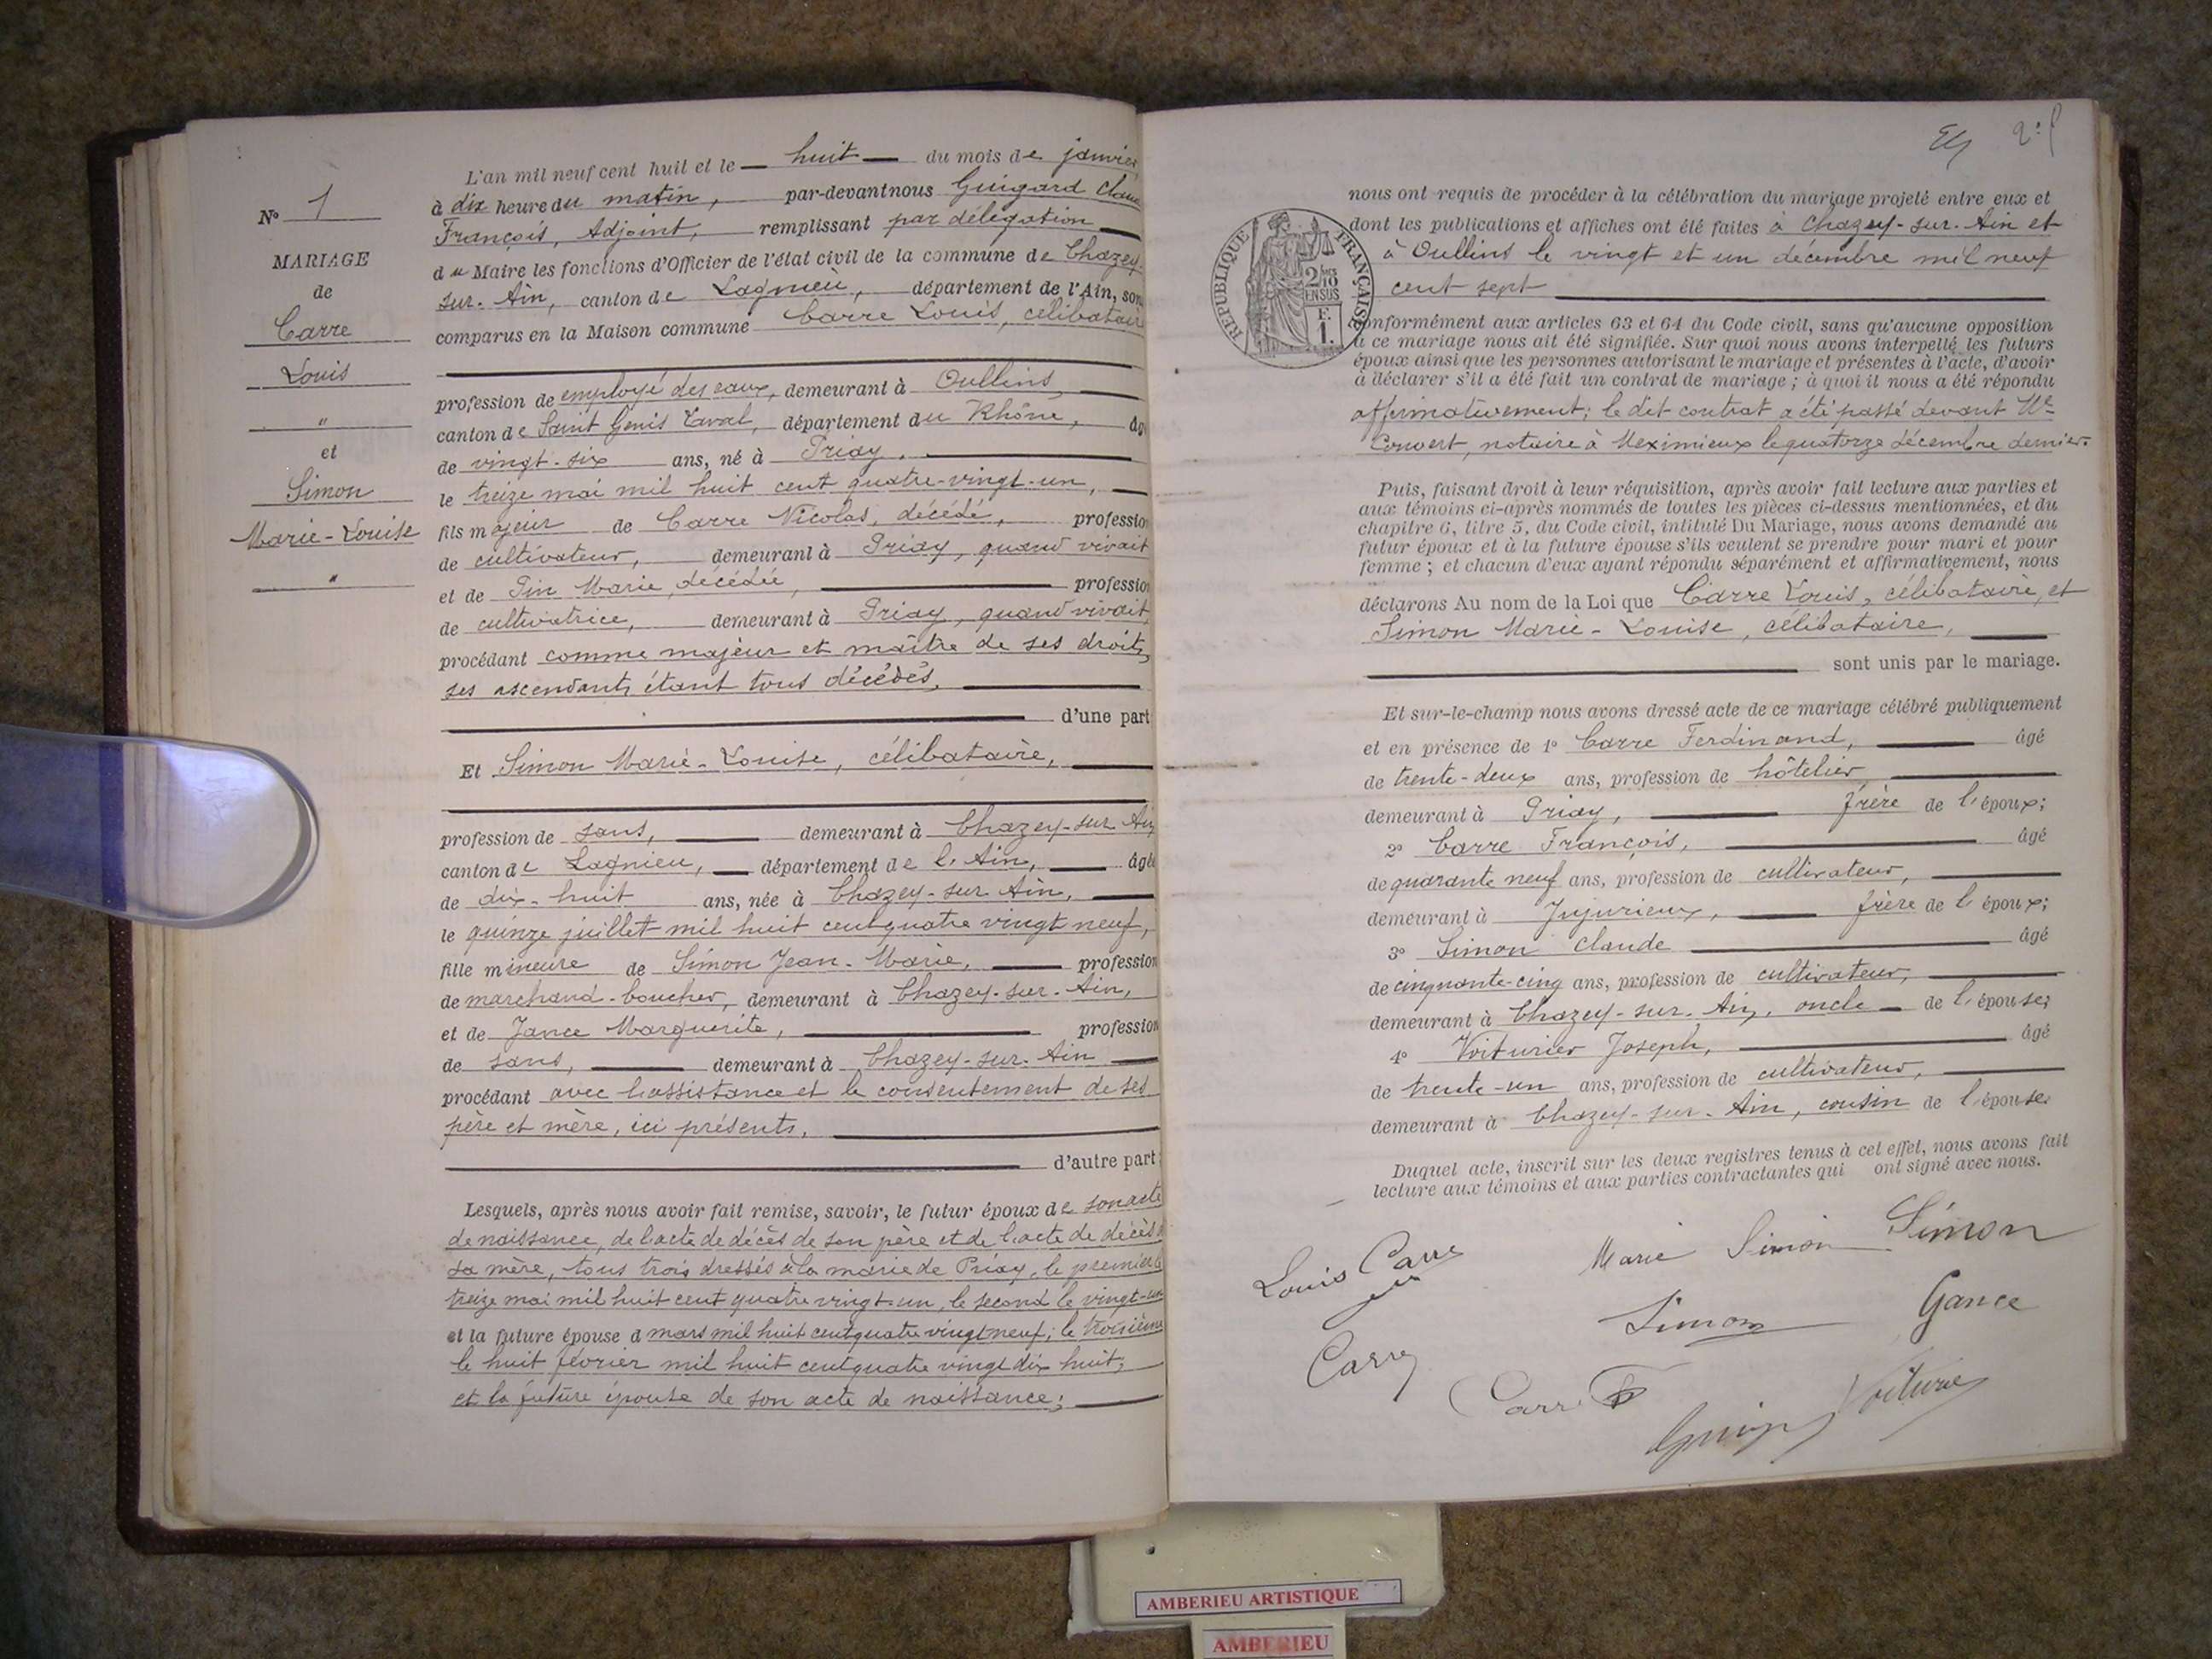 N° 1
MARIAGE
de
Carre
Louis
"
et
Simon
Marie-Louise
"
L'an mil neuf cent huit et le huit du mois de janvier
à dix heure du matin, par-devant nous Guigard Clau
François, Adjoint, remplissant par délégation
du Maire les fonctions d'Officier de l'état civil de la commune de Chazey-
sur-Ain, canton de Lagnieu, département de l'Ain, son
comparus en la Maison commune Carre Louis, célibataire
profession de employé des eaux, demeurant à Oullins,
canton de Saint Genis Laval, département du Rhône, âgé
de vingt-six ans, né à Priay,
le treize mai mil huit cent quatre-vingt-un,
fils majeur de Carre Nicolas, décédé, profession
de cultivateur, demeurant à Priay, quand vivait
et de Pin Marie, décédée, profession
de cultivatrice, demeurant à Priay, quand vivait,
procédant comme majeur et maître de ses droits,
ses ascendants étant tous décédés,
d'une part
Et Simon Marie-Louise, célibataire,
profession de sans, demeurant à Chazey-sur-Ain
canton de Lagnieu, département de l'Ain, âgée
de dix-huit ans, née à Chazey-sur-Ain,
le quinze juillet mil huit cent quatre vingt neuf,
fille mineure de Simon Jean-Marie, profession
de marchand-boucher, demeurant à Chazey-sur-Ain,
et de Jance Marguerite, profession
de sans, demeurant à Chazey-sur-Ain
procédant avec l'assistance et le consentement de ses
père et mère, ici présents,
d'autre part;
Lesquels, après nous avoir fait remise, savoir, le futur époux de son acte
de naissance, de l'acte de décès de son père et de l'acte de décès
sa mère, tous trois dressés à la mairie de Priay, le premier le
treize mai mil huit cent quatre vingt-un, le second le vingt-un
et la future épouse d mars mil huit cent quatre vingt neuf; le troisième
le huit février mil huit cent quatre vingt dix huit;
et la future épouse de son acte de naissance;
nous ont requis de procéder à la célébration du mariage projeté entre eux et
dont les publications et affiches ont été faites à Chazey-sur-Ain et
à Oullins le vingt et un décembre mil neuf
cent sept
RÉPUBLIQUE FRANÇAISE
2/10
EN SUS
F.
1.
conformément aux articles 63 et 64 du Code civil, sans qu'aucune opposition
à ce mariage nous ait été signifiée. Sur quoi nous avons interpellé les futurs
époux ainsi que les personnes autorisant le mariage et présentes à l'acte, d'avoir
à déclarer s'il a été fait un contrat de mariage; à quoi il nous a été répondu
affirmativement; le dit contrat a été passé devant Me
Convert, notaire à Meximieux le quatorze décembre dernier.
Puis, faisant droit à leur réquisition, après avoir fait lecture aux parties et
aux témoins ci-après nommés de toutes les pièces ci-dessus mentionnées, et du
chapitre 6, titre 5, du Code civil, intitulé Du Mariage, nous avons demandé au
futur époux et à la future épouse s'ils veulent se prendre pour mari et pour
femme; et chacun d'eux ayant répondu séparément et affirmativement, nous
déclarons Au nom de la Loi que Carre Louis, célibataire, et
Simon Marie-Louise, célibataire,
sont unis par le mariage.
Et sur-le-champ nous avons dressé acte de ce mariage célébré publiquement
et en présence de 1° Carre Ferdinand, âgé
de trente-deux ans, profession de hôtelier
demeurant à Priay, frère de l'époux;
2° Carre François, âgé
de quarante neuf ans, profession de cultivateur,
demeurant à Jujurieux, frère de l'époux;
3° Simon Claude âgé
de cinquante-cinq ans, profession de cultivateur,
demeurant à Chazey-sur-Ain, oncle de l'épouse;
4° Voiturier Joseph, âgé
de trente-un ans, profession de cultivateur,
demeurant à Chazey-sur-Ain, cousin de l'épouse.
Duquel acte, inscrit sur les deux registres tenus à cet effet, nous avons fait
lecture aux témoins et aux parties contractantes qui ont signé avec nous.
Louis Carre
Marie Simon
Simon
Simon
Gance
Carre
Carre
Voiturier
AMBERIEU ARTISTIQUE
AMBERIEU